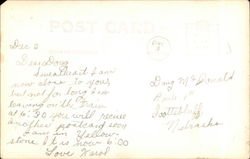 POST CARD
Dec 2
Dear Doug
Sweetheart I am
now close to you,
but not for long I'm
leaving on the Train
at 6:30 you will receive
another postcard soon
I am in Yellow-
stone It is now 6:00
Love
Doug McDonald
Scottsbluff
Nebraska